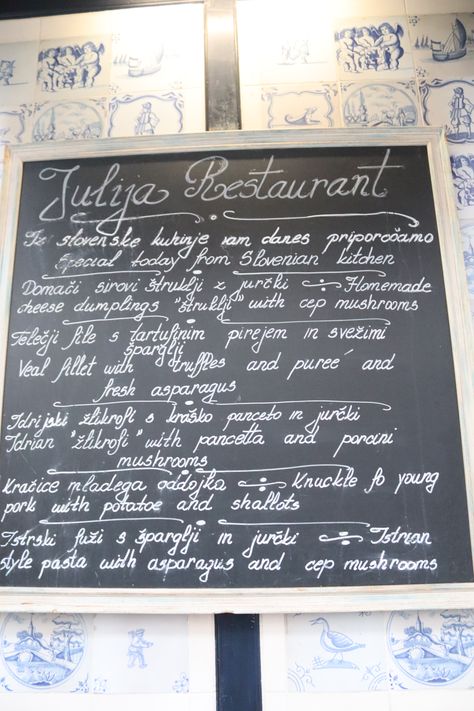 Julija Restaurant
Iz slovenske kuhinje vam danes priporočamo
Special today from Slovenian kitchen
Domači sirovi štruklji z jurčki ÷ Homemade
cheese dumplings "štruklji" with cep mushrooms
Telečji file s tartufinim pirejem in svežimi
šparglji
Veal fillet with truffles and pureé and
fresh asparagus
Idrijski žlikrofi s kraško panceto in jurčki
Idrian "žlikrofi" with pancetta and porcini
mushrooms
Kračice mladega odojka ÷ Knuckle fo young
pork with potatoe and shallots
Istrski fuži s šparglji in jurčki ÷ Istrian
style pasta with asparagus and cep mushrooms